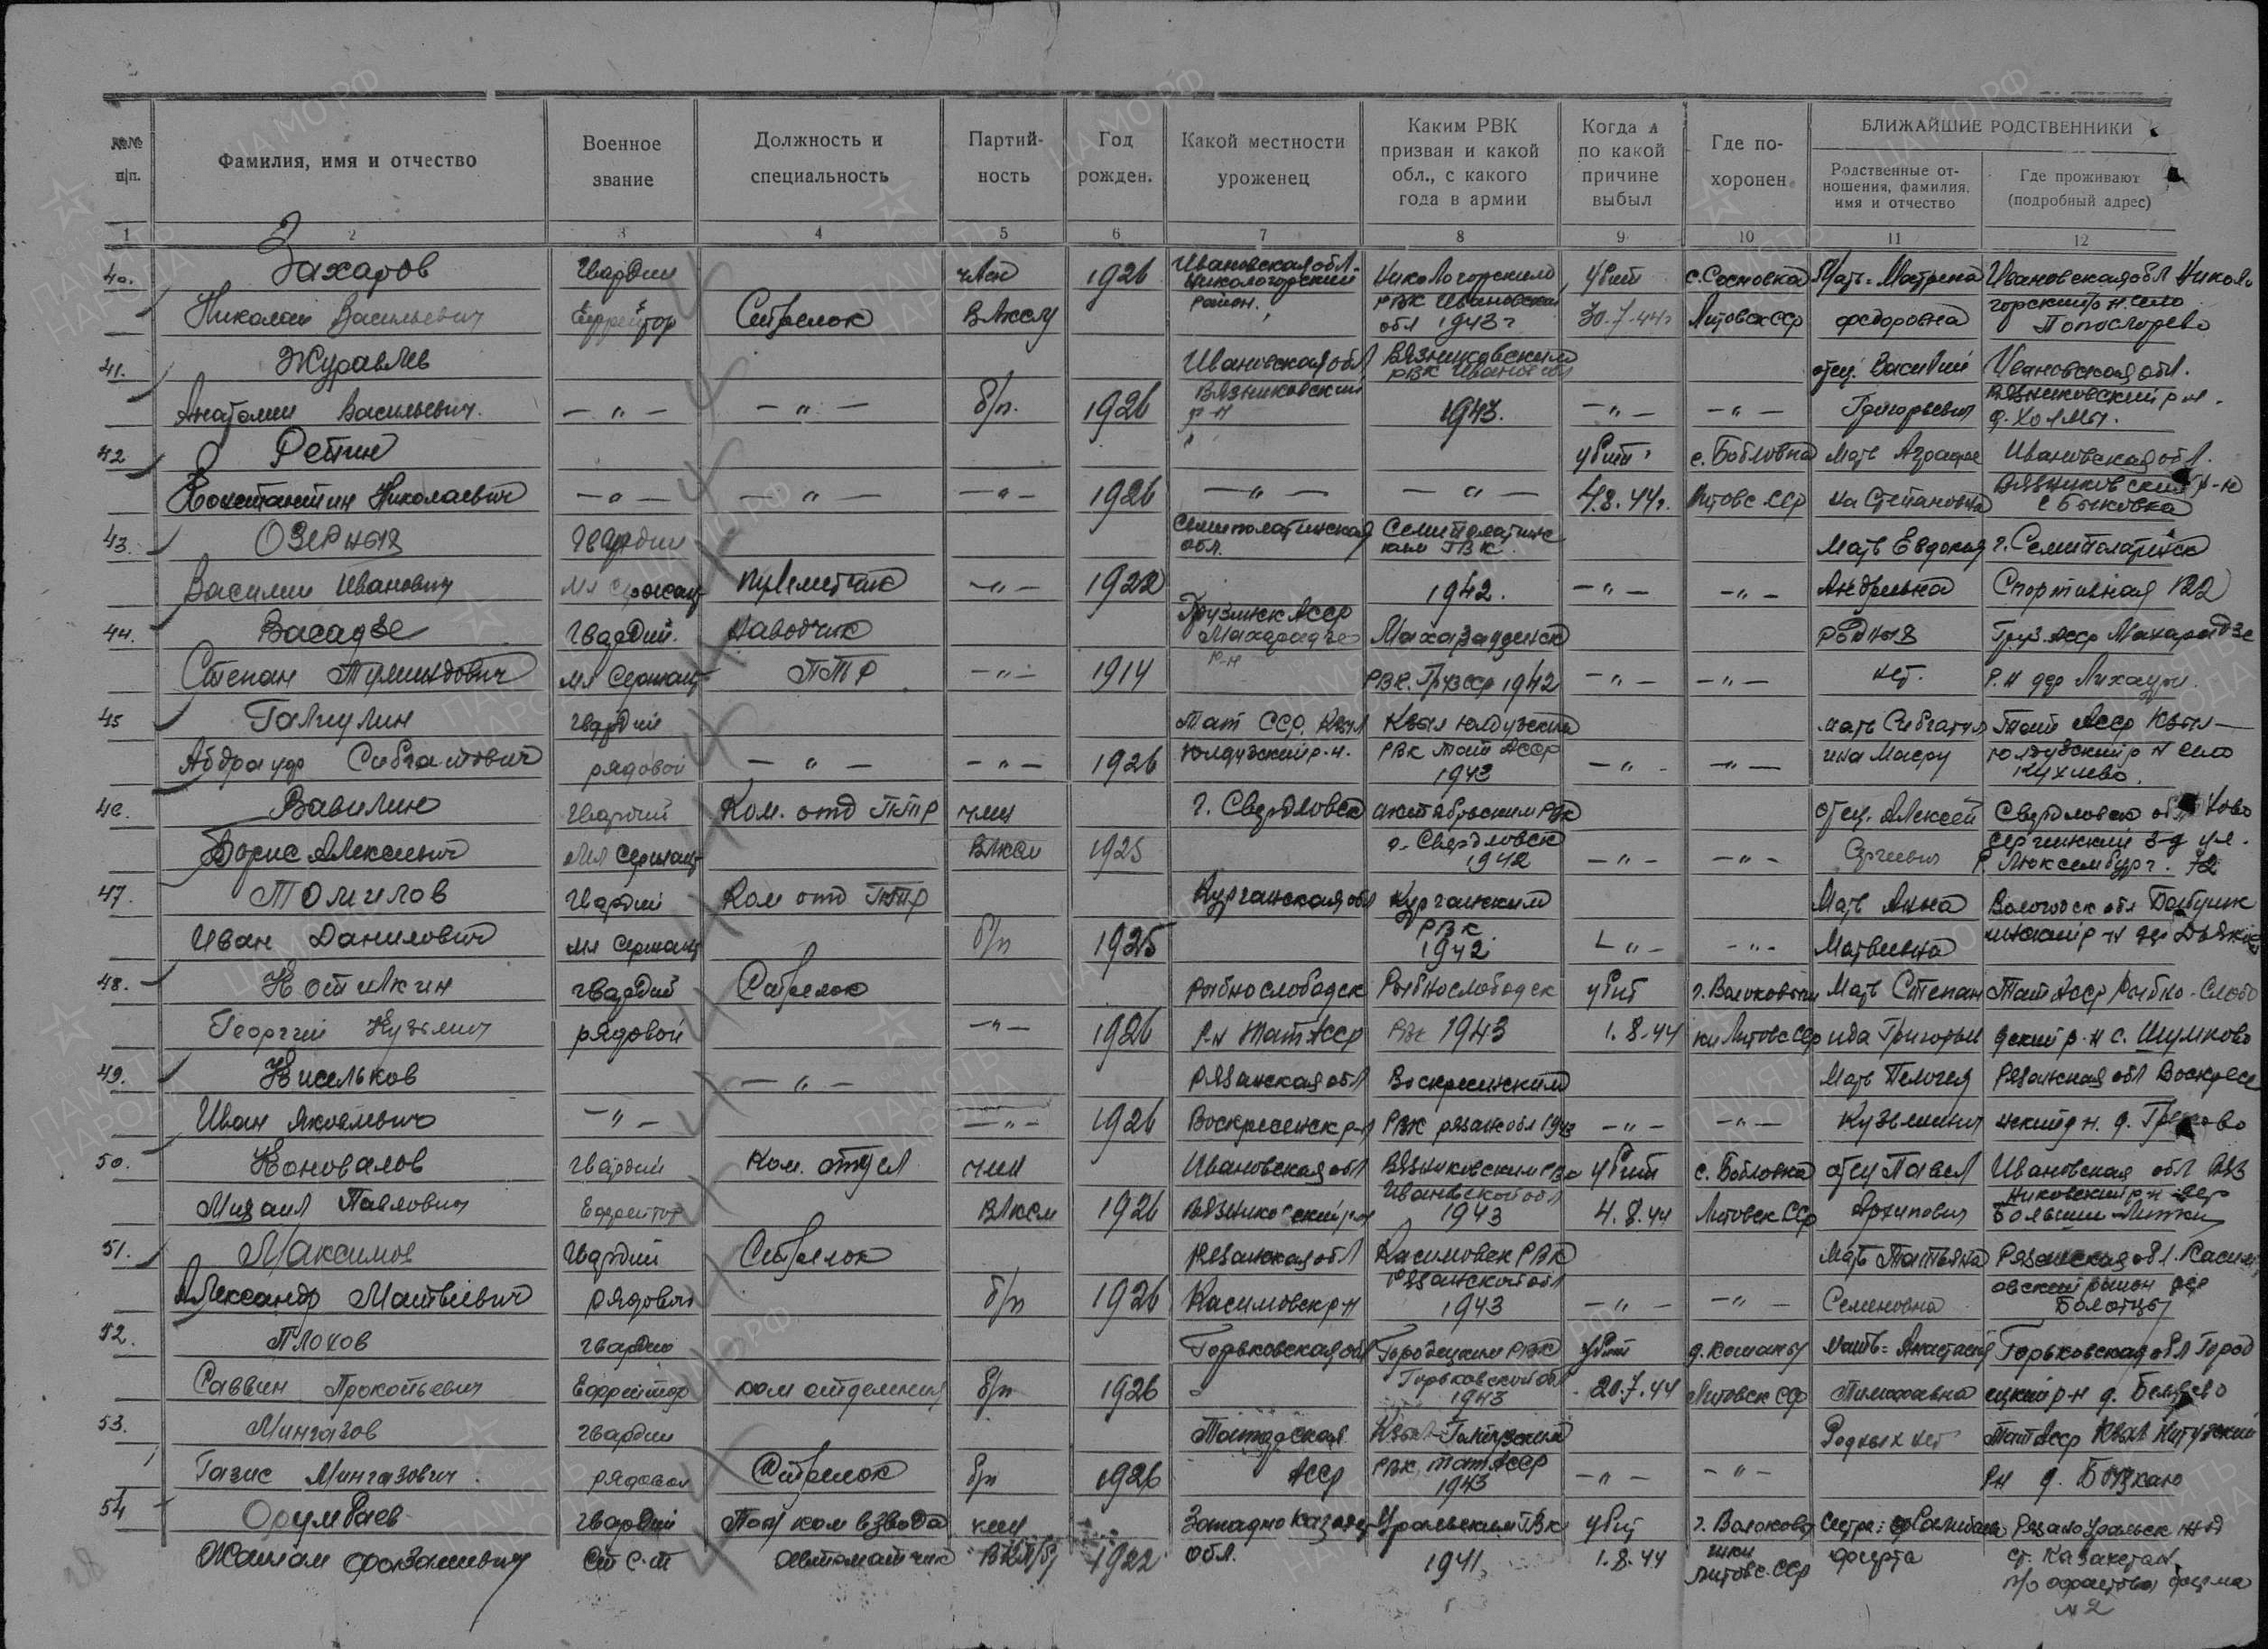 №№ п|п.
Фамилия, имя и отчество
Военное звание
Должность и специальность
Партий-ность
Год рожден.
Какой местности уроженец
Каким РВК призван и какой обл., с какого года в армии
Когда и по какой причине выбыл
Где по-хоронен
БЛИЖАЙШИЕ РОДСТВЕННИКИ
Родственные от-ношения, фамилия, имя и отчество
Где проживают (подробный адрес)
1 2 3 4 5 6 7 8 9 10 11 12
40. Захаров гвардии член 1926 Ивановская обл. Никологорским убит с. Сосновка Мать = Матрена Ивановская обл Николо
Никологорский
Николай Васильевич Ефрейтор Стрелок ВЛКСМ район. РВК Ивановская обл 1943 г 30.7.44г Литовск ССР Федоровна горский р-н село
41. Журавлев Ивановская обл Вязниковским РВК Иванов обл отец. Василий Ивановская обл.
Анатолий Васильевич. — „ — — „ — б/п. 1926 Вязниковский р-н 1943. — „ — — „ — Григорьевич Вязниковский р-н. д. Холмы.
42 Репин убит с. Бобловка Мать Ивановская обл.
Константин Николаевич — „ — — „ — — „ — 1926 — „ — — „ — 4.8.44г. Литовс ССР на Степановна Вязниковский р-н
43. Озерных гвардии Семиполатинская обл. Семиполатинс ким ГВК Мать Евдокия г. Семиполатинск
Василий Иванович мл сержант пулеметчик — „ — 1922 1942. — „ — — „ — Андреевна Спортивная 122
44. Васадзе гвардий. Наводчик Грузинск АССР Махарадзе р-н родных Груз. АССР Махарадзе
Степан мл сержант ПТР — „ — 1914 РВК. Груз ССР 1942 — „ — — „ — нет. Р.н дер Лихаури.
45 Галиулин гвардий Тат ССР. Кзыл Кзыл Юлдузским мать Тат АССР Кзыл—
Абдрауф рядовой — „ — — „ — 1926 Юлдузский р-н. РВК тат АССР 1943 — „ — — „ — Юлдузский р-н село
46. Вавилин гвардий Ком. отд ПТР член г. Свердловск октябрьским РВК отец. Алексей Свердловск обл Ново
Борис Алексеевич мл сержант ВЛКСМ 1925 г. Свердловск 1942 — „ — — „ — Сергеевич сергинский з-д ул. Р. Люксембург. 72
47. Томилов гвардий Ком отд ПТР Курганская обл Курганским Мать Анна Вологодск обл
Иван Данилович мл сержант б/п 1925 РВК 1942 — „ — — „ — Матвеевна
48. Котилкин гвардий Стрелок Рыбнослободск Рыбнослободск убит Мать Степан Тат АССР Рыбно-Слобо
Георгий Кузьмич рядовой — „ — 1926 р-н Тат АССР РВК 1943 1.8.44 Литовс ССР ида Григорьев дский р-н с. Шумково
49. Кисельков — „ — Рязанская обл Воскресенским Мать Пелагея Рязанская обл Воскресе
Иван Яковлевич — „ — — „ — 1926 Воскресенск р-н РВК рязан обл 1943 — „ — — „ — Кузьминич нский р н.
50. Коновалов гвардий ком. отдел член Ивановская обл Вязниковским РВК убит с. Бобловка отец Павел Ивановская обл Вяз
Михаил Павлович Ефрейтор ВЛКСМ 1926 Вязниковский р-н Ивановской обл 1943 4.8.44 Литовск ССР Архипович никовский р-н дер
51. Максимов гвардий Стрелок Рязанская обл Касимовск РВК Мать Татьяна Рязанская обл. Касим
Александр Матвеевич рядовой б/п 1926 Касимовск р-н Рязанской обл 1943 — „ — — „ — Семеновна овский район дер Болотцы
52. Плохов гвардии Горьковская обл Городецким РВК убит Мать = Анастасия Горьковская обл Город
Саввин Прокопьевич Ефрейтор ком отделения б/п 1926 „ Горьковской обл 1943 20.7.44 Литовск ССР Тимофеевна ецкий р-н д.
53. Мингазов гвардии Татарская Родных нет Тат АССР
Газис Мингазович. рядовой Стрелок б/п 1926 АССР РВК тат АССР 1943 — „ — — „ — рн д.
54 Орумбаев гвардий Пом ком взвода член Западно Казахс Уральским ГВК убит Сестра: Рязано Уральск ж д
Ст с-т автоматчик ВКП/б/ 1922 обл. 1941. 1.8.44 Литовс. ССР ст. Казахстан
п/о ферма
№ 2